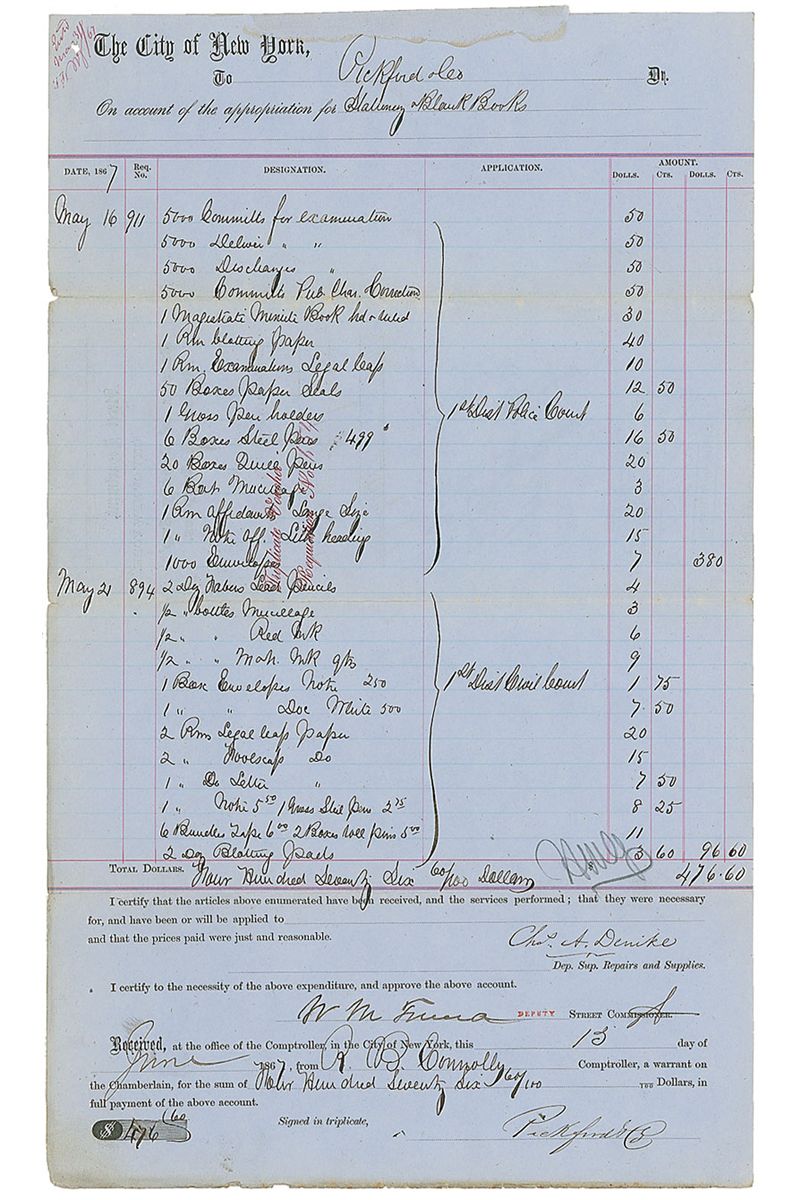 The City of New York,
To Pickford & Co Dr.
On account of the appropriation for Stationery & Blank Books
DATE, 1867 Req. No. DESIGNATION. APPLICATION. AMOUNT.
DOLLS. CTS. DOLLS. CTS.
May 16 911 5000 Committs for examination 50
5000 Deliver " " 50
5000 Discharges " 50
5000 Committs Pub. Char. Correction 50
1 Magistrate Minute Book hd & ruled 30
1 Rm blotting Paper 40
1 Rm. Examinations Legal Cap 10
50 Boxes Paper Seals 12 50
1 Gross Pen holders 1st Dist Police Court 6
6 Boxes Steel Pens 499 16 50
20 Boxes Quill Pens 20
6 Bots Mucilage 3
1 Rm Affidavits Large Size 20
1 " Note Off. Lith heading 15
1000 Envelopes 7 380
May 21 894 2 Doz Fabers Lead Pencils 4
1/2 " bottles Mucilage 3
1/2 " " Red Ink 6
1/2 " " Mah. Ink qts 9
1 Box Envelopes Note 250 1st Dist Civil Court 1 75
1 " " Doc White 500 7 50
2 Rms Legal Cap Paper 20
2 " Foolscap Do 15
1 " Do Letter " 7 50
1 " Note 5 50 1 Gross Steel Pens 2 75 8 25
6 Bundles Tape 6 00 2 Boxes Pins 5 00 11
2 Doz Blotting Pads 3 60 96 60
TOTAL DOLLARS. Four Hundred Seventy Six 60/100 Dollars 476.60
I certify that the articles above enumerated have been received, and the services performed; that they were necessary
for, and have been or will be applied to
and that the prices paid were just and reasonable.
Chas. A. Denike
Dep. Sup. Repairs and Supplies.
I certify to the necessity of the above expenditure, and approve the above account.
W M
DEPUTY STREET COMMISSIONER.
Received, at the office of the Comptroller, in the City of New York, this 13 day of
June 1867, from R. B. Connolly Comptroller, a warrant on
the Chamberlain, for the sum of Four Hundred Seventy Six 60/100 Dollars, in
full payment of the above account.
$476 60
Signed in triplicate,
Pickford & Co